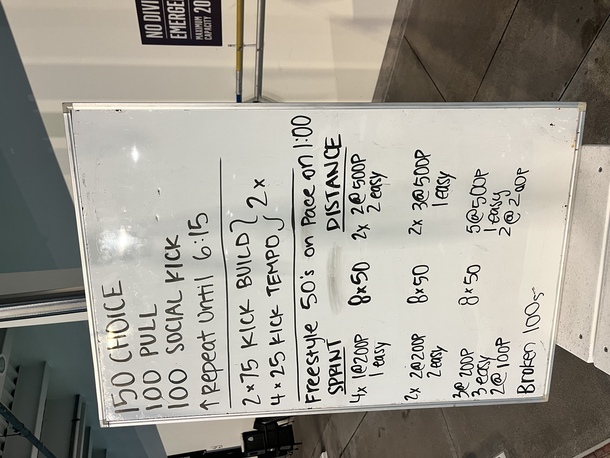 150 CHOICE
100 PULL
100 SOCIAL KICK
↑ Repeat Until 6:15
2×75 KICK BUILD
4×25 KICK TEMPO } 2×
Freestyle 50's on Pace on 1:00
SPRINT DISTANCE
4× 1@200P 8×50 2× 2@500P
1 easy 2 easy
2× 2@200P 8×50 2× 3@500P
2 easy 1 easy
3@200P 8×50 5@500P
3 easy 1 easy
2@100P 2@200P
Broken 100s
NO DIVI
EMERGE
MAXIMUM
CAPACITY 20